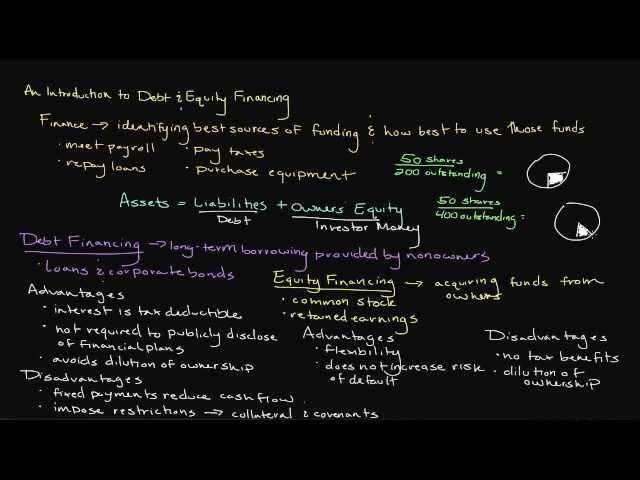 An Introduction to Debt & Equity Financing
Finance → identifying best sources of funding & how best to use those funds
• meet payroll
• pay taxes
• repay loans
• purchase equipment
50 shares
200 outstanding =
50 shares
400 outstanding =
Assets = Liabilities + Owners' Equity
Debt
Investor Money
Debt Financing → long-term borrowing provided by nonowners
• loans & corporate bonds
Advantages
• interest is tax deductible
• not required to publicly disclose
of financial plans
• avoids dilution of ownership
Disadvantages
• fixed payments reduce cash flow
• impose restrictions → collateral & covenants
Equity Financing → acquiring funds from
owners
• common stock
• retained earnings
Advantages
• flexibility
• does not increase risk
of default
Disadvantages
• no tax benefits
• dilution of
ownership